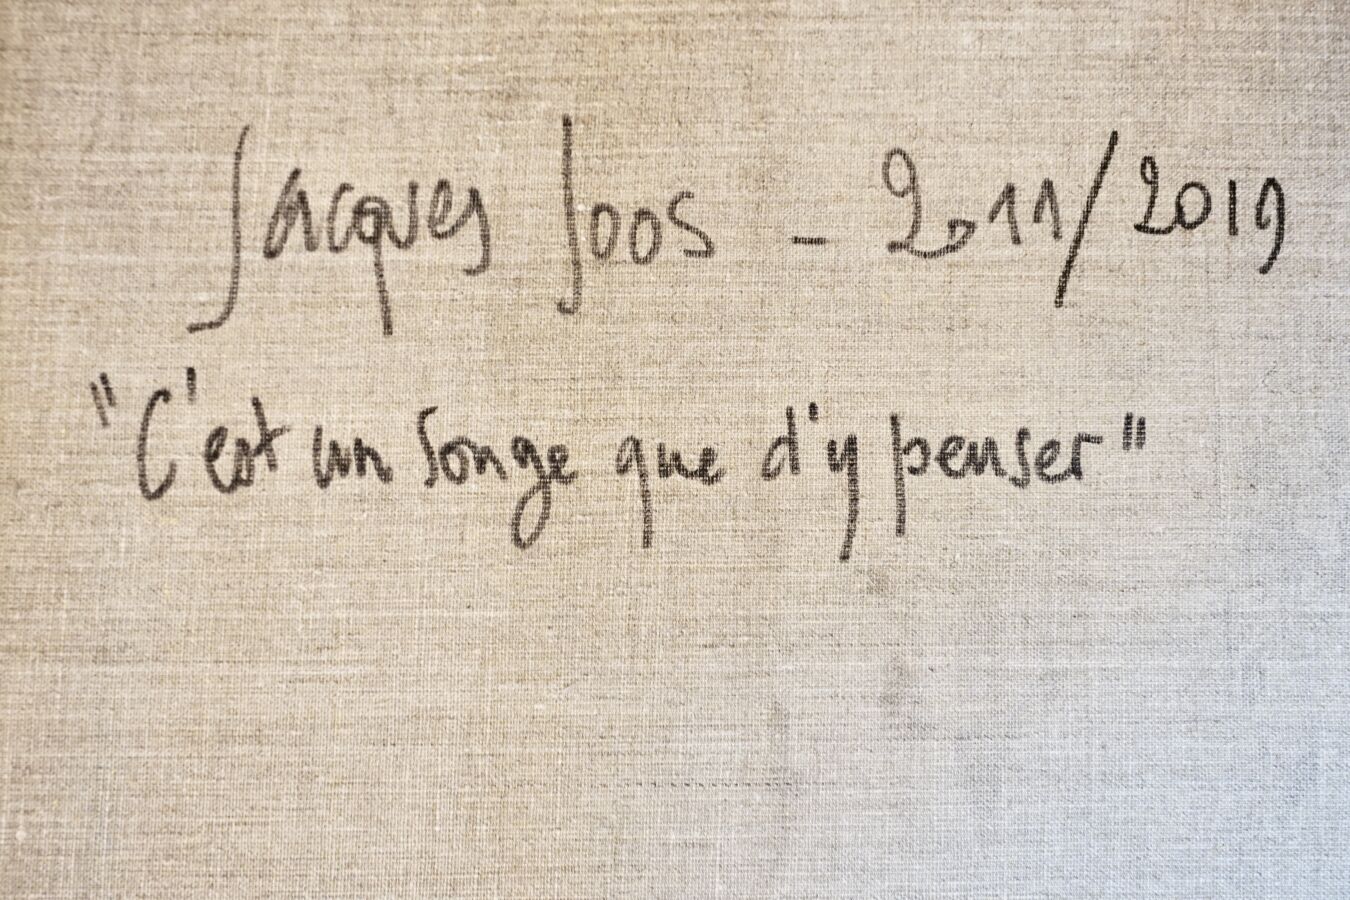 Jacques Joos - 2011/2019
"C'est un songe que d'y penser"